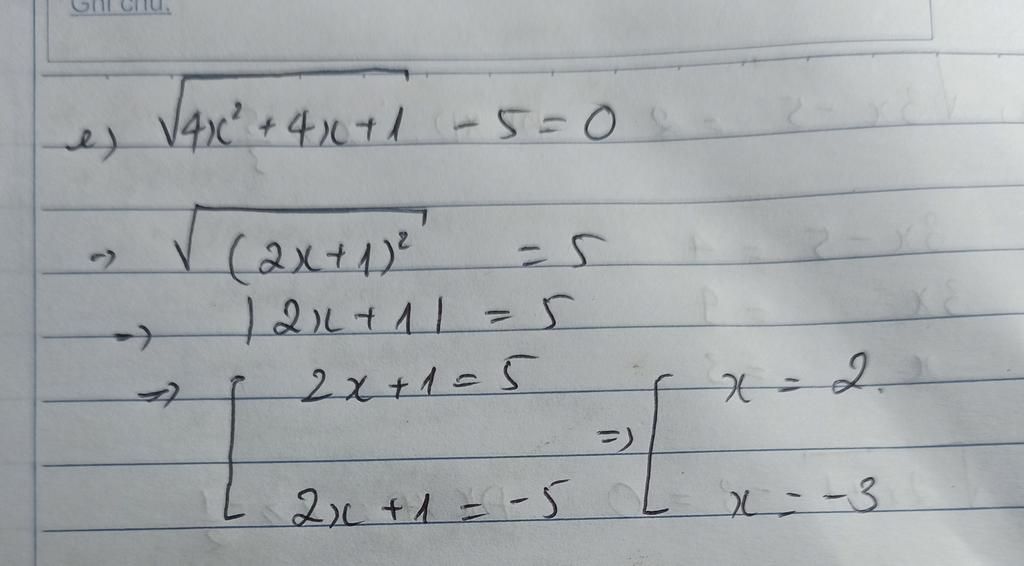 Ghi chú:
e) √(4x² + 4x + 1) - 5 = 0
→ √((2x+1)²) = 5
→ |2x + 1| = 5
=> [ 2x + 1 = 5 => [ x = 2.
2x + 1 = -5 x = -3